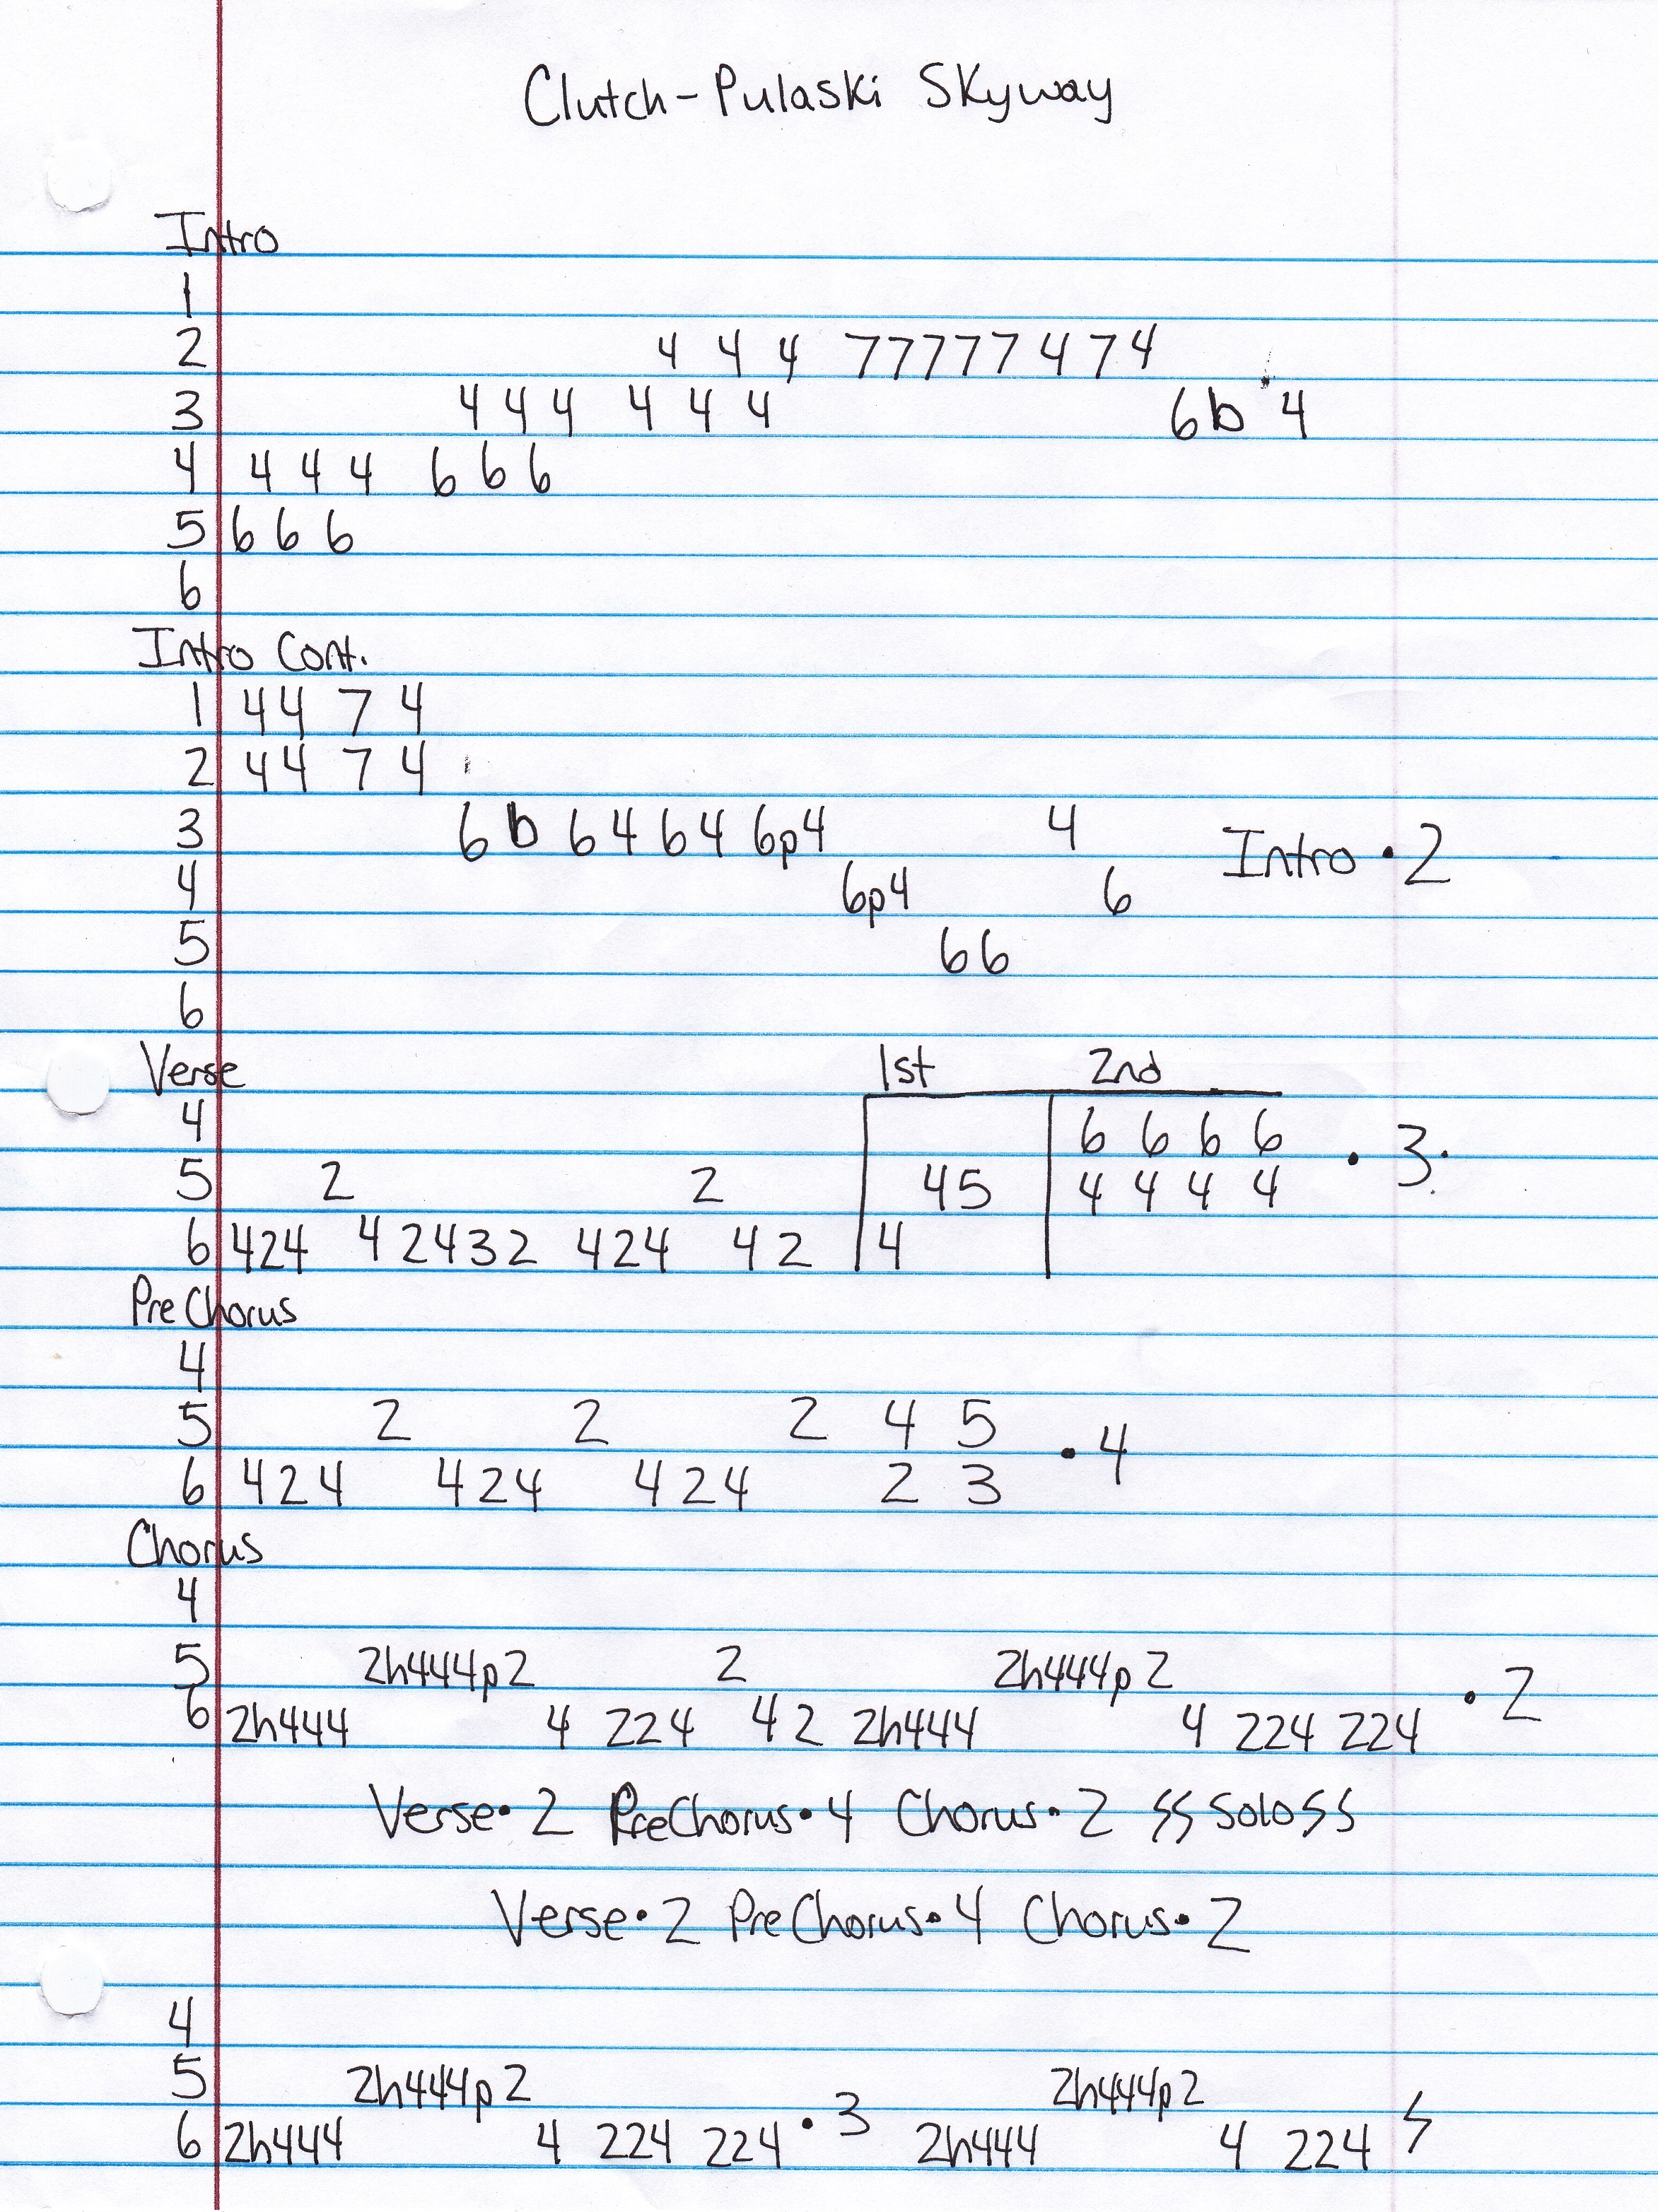 Clutch-Pulaski Skyway
Intro
1
2 4 4 4 77777 4 7 4
3 4 4 4 4 4 4 6b 4
4 4 4 4 6 6 6
5 6 6 6
6
Intro Cont.
1 44 7 4
2 44 7 4
3 6 b 6 4 6 4 6p4 4 Intro • 2
4 6p4 6
5 66
6
Verse 1st 2nd
4 6 6 6 6 • 3.
5 2 2 45 4 4 4 4
6 424 4 2432 424 4 2 4
PreChorus
4
5 2 2 2 4 5 • 4
6 424 424 424 2 3
Chorus
4
5 2h444p2 2 2h444p2 • 2
6 2h444 4 224 4 2 2h444 4 224 224
Verse• 2 PreChorus• 4 Chorus• 2 SS Solo SS
Verse• 2 PreChorus• 4 Chorus• 2
4
5 2h444p2 2h444p2
6 2h444 4 224 224 • 3 2h444 4 224